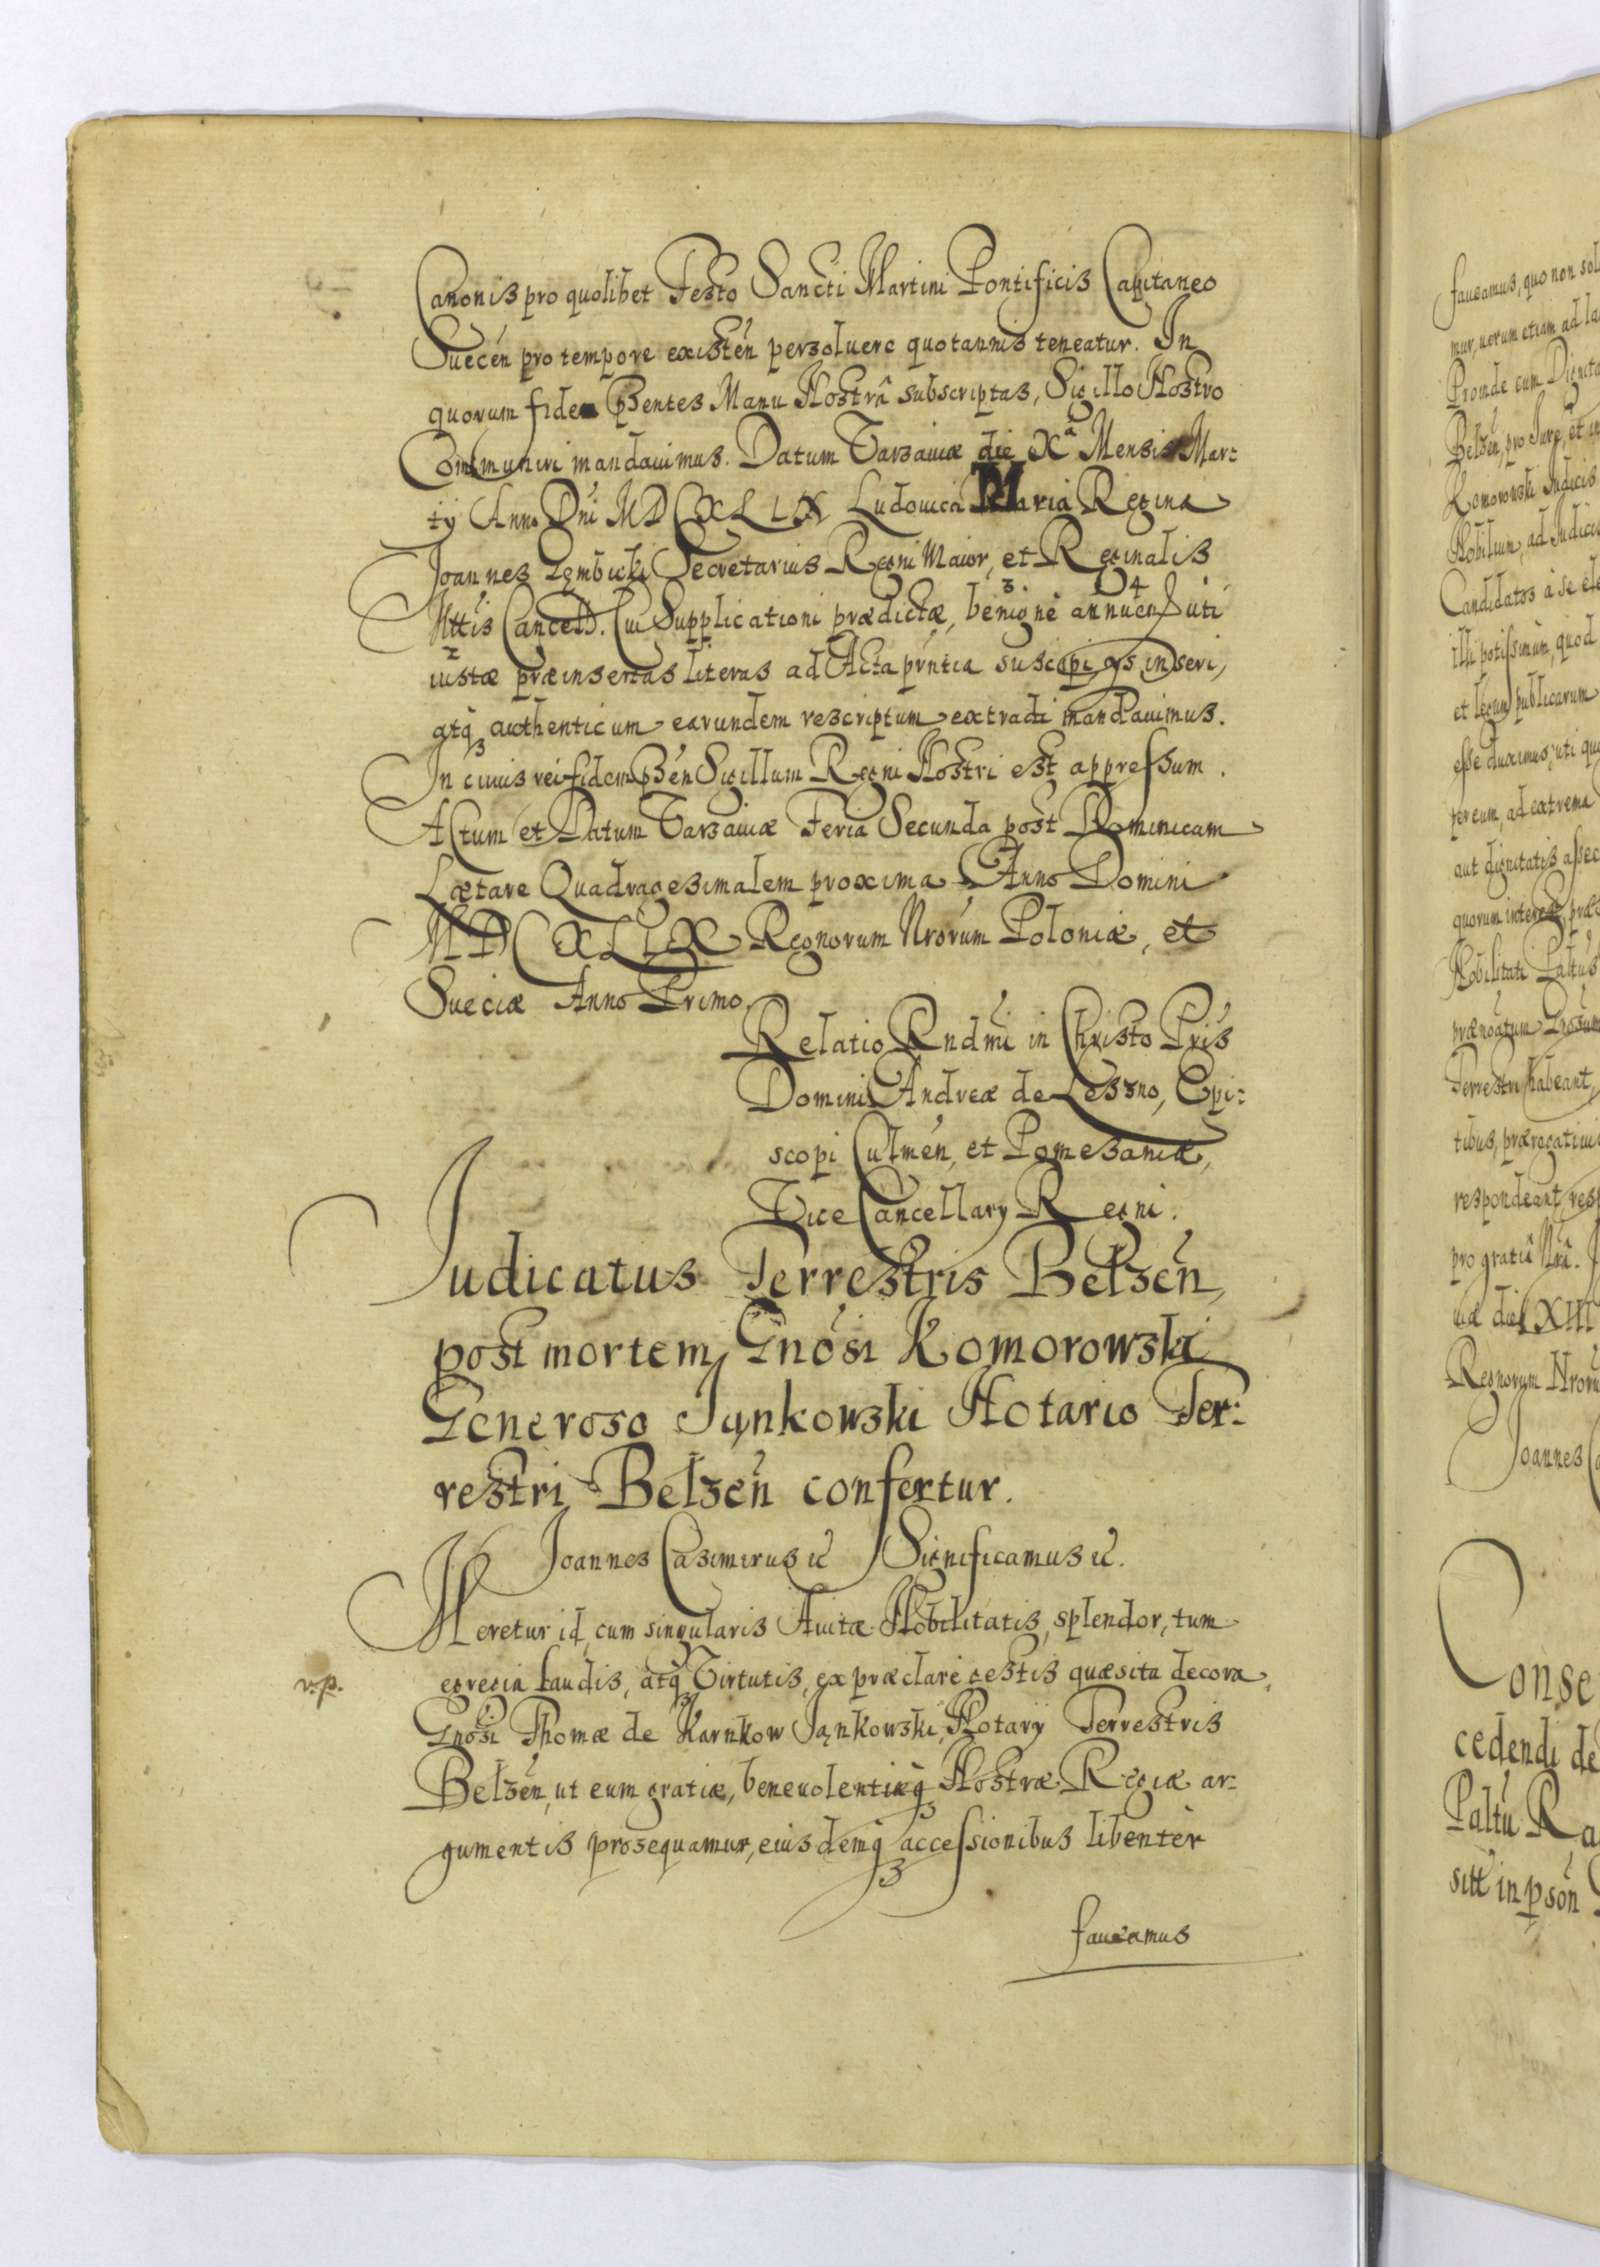 Canonis pro quolibet Festo Sancti Martini Pontificis Capitaneo
Suecen̄ pro tempore existen̄ persoluere quotannis teneatur. In
quorum fidem pñtes Manu Nostrâ subscriptas, Sigillo Nostro
Communiri mandauimus. Datum Varsauiæ die Xa Mensis Mar:
tij Anno Dni MDCXLIX Ludouica Maria Regina
Joannes Gembicki Secretarius Regni Maior, et Reginalis
Mttis Cancell. Cui Supplicationi prædictæ, benignè annuen̄ uti
iustæ præinsertas literas ad Acta pñtia suscipi, ijs inseri,
atq3 authenticum earundem rescriptum extradi mandauimus.
In cuius rei fidem pñen Sigillum Regni Nostri est appressum.
Actum et Datum Varsauiæ Feria Secunda post Dominicam
Lætare Quadragesimalem proxima Anno Domini
MDCXLIX Regnorum Nrorum Poloniæ, et
Sueciæ Anno Primo
Relatio Rndmi in Christo Pris
Domini Andreæ de Leszno, Epi:
scopi Culmen̄, et Pomesaniæ,
Vice Cancellarij Regni.
Judicatus Terrestris Belzen̄,
post mortem Gnosi Komorowski
Generoso Jąnkowski Notario Ter:
restri Belzen̄ confertur.
Joannes Casimirus ic̃ Significamus ic̃.
Meretur id, cum singularis Auitæ Nobilitatis, splendor, tum
v.p.
egregia laudis, atq3 Virtutis, ex præclarè gestis quæsita decora,
Gnosi Thomæ de Karnkow Jąnkowski, Notarij Terrestris
Belzen̄, ut eum gratiæ, beneuolentiæq3 Nostræ Regiæ ar:
gumentis prosequamur, eiusdemq3 accessionibus libentèr
faueamus
faueamus, quo non sol
mur, uerum etiam ad la
Proinde cum Dignita
Belzen̄, pro Jure, et in
Komorowski Judicis
Nobilium, ad Judica
Candidatos à se ele
illi potissimùm, quod
et legum publicarum
esse duximus, uti qu
per eum, ad extrema
aut dignitatis assec
quorum interest, præ
Nobilitati Paltus
prænoatum Gnosum
Terrestri habeant,
tibus, prærogatiuis
respondeant, resp
pro gratiâ Nrâ. J
uiæ die XIII
Regnorum Nroru
Joannes Ca
Conse
cedendi de
Paltu Ra
sitt in pson̄